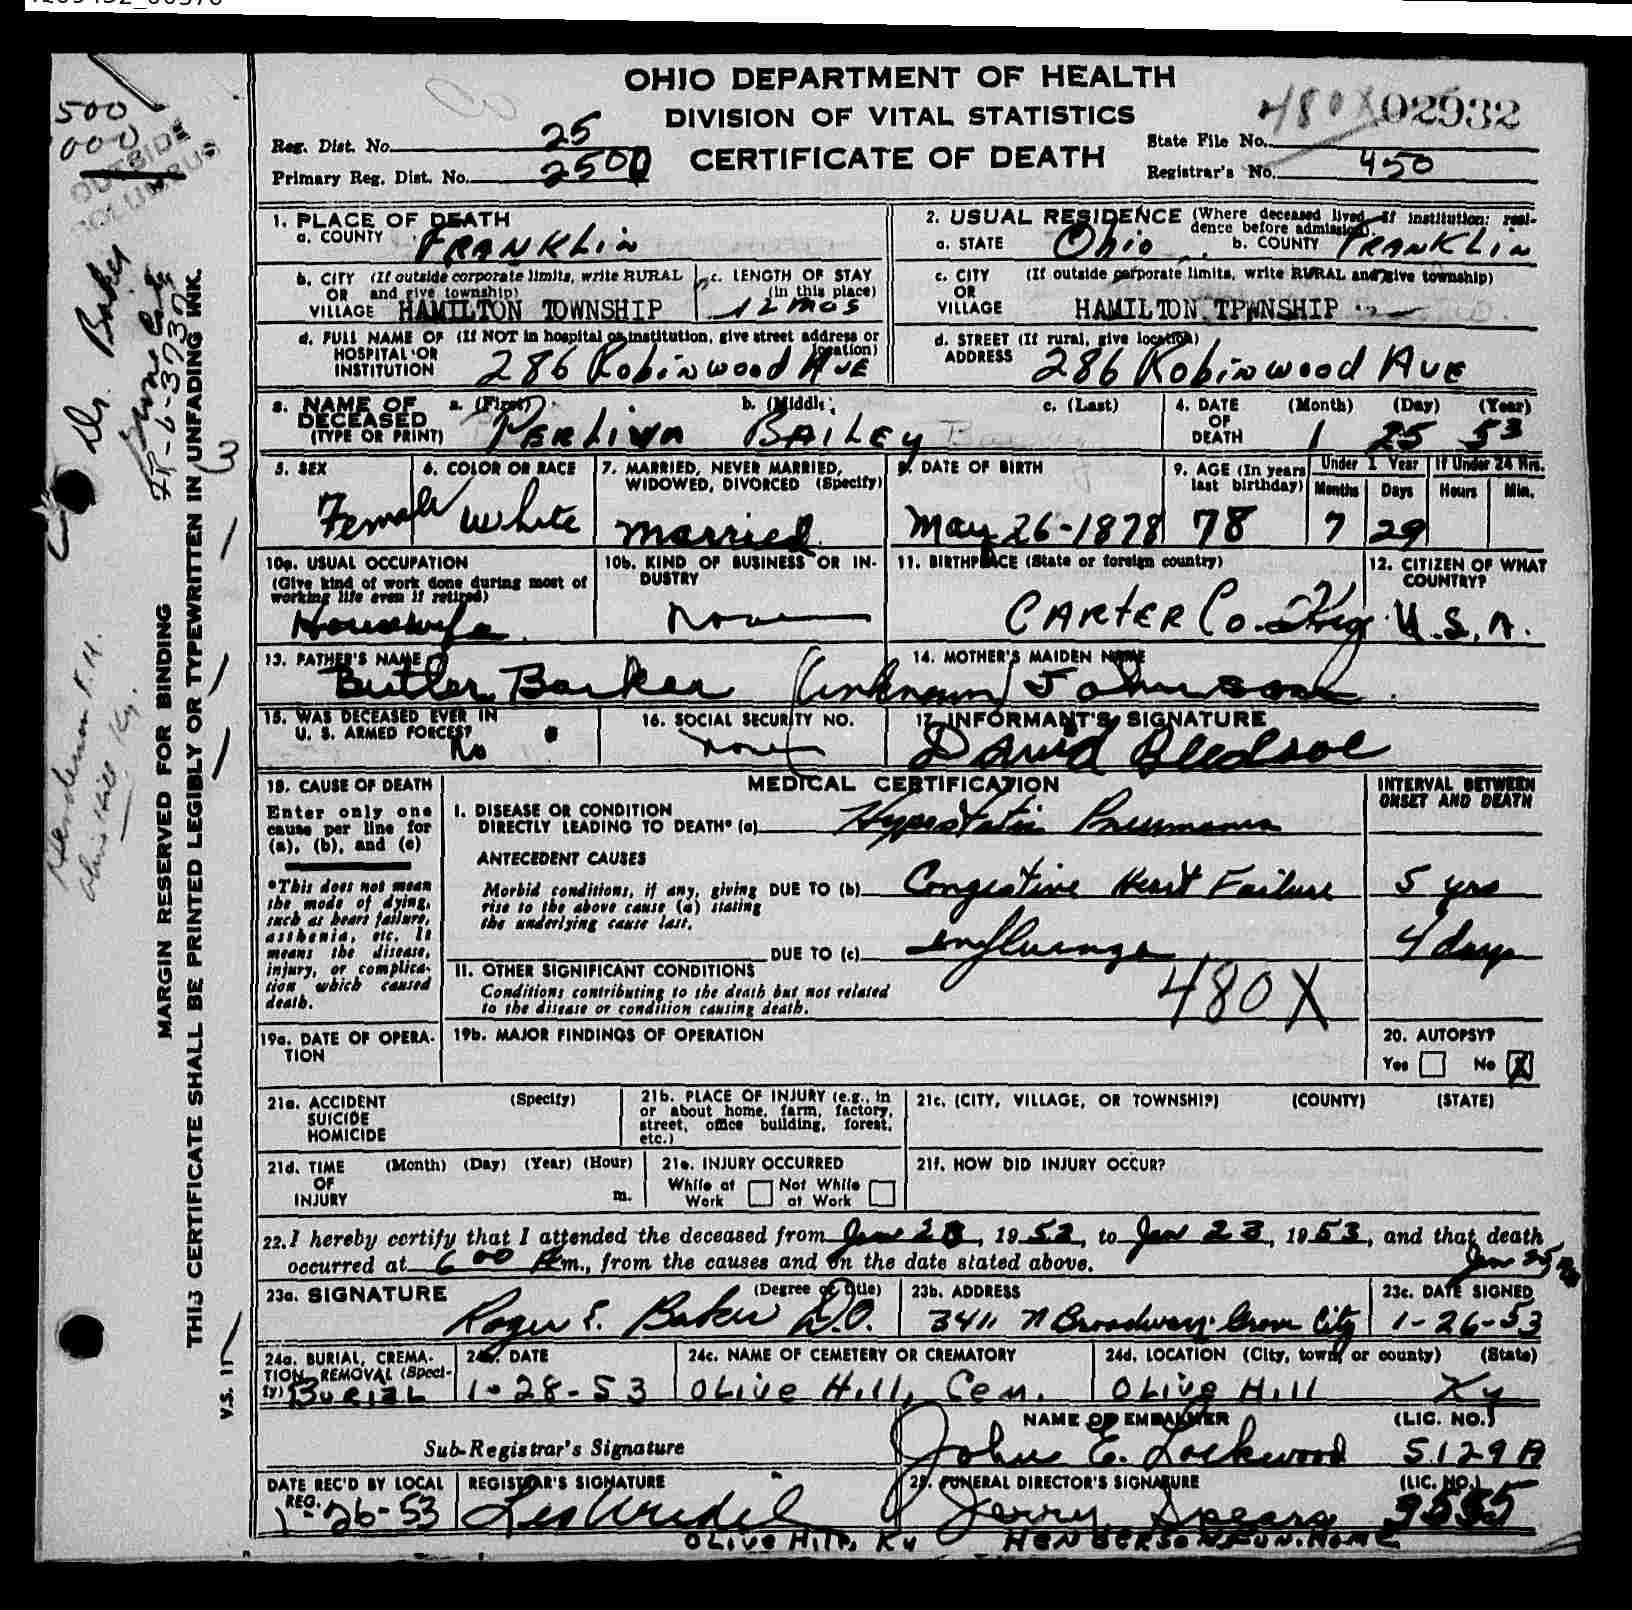 OHIO DEPARTMENT OF HEALTH
DIVISION OF VITAL STATISTICS
CERTIFICATE OF DEATH
Reg. Dist. No. 25
Primary Reg. Dist. No. 2500
480X 02932
State File No.
Registrar's No. 450
500
000
OUTSIDE
COLUMBUS
Dr. Baker
MARGIN RESERVED FOR BINDING
THIS CERTIFICATE SHALL BE PRINTED LEGIBLY OR TYPEWRITTEN IN UNFADING INK.
V.S. 11
Henderson F.H.
Olive Hill Ky.
1. PLACE OF DEATH
a. COUNTY FRANKLIN
b. CITY (If outside corporate limits, write RURAL
OR and give township)
VILLAGE HAMILTON TOWNSHIP
c. LENGTH OF STAY
(in this place)
12 mos
d. FULL NAME OF (If NOT in hospital or institution, give street address or
location)
HOSPITAL OR
INSTITUTION 286 Robinwood AVE
2. USUAL RESIDENCE (Where deceased lived. If institution: resi-
dence before admission).
a. STATE Ohio b. COUNTY FRANKLIN
c. CITY (If outside corporate limits, write RURAL and give township)
OR
VILLAGE HAMILTON TPWNSHIP
d. STREET (If rural, give location)
ADDRESS 286 Robinwood AVE
3. NAME OF DECEASED
(TYPE OR PRINT)
a. (First) b. (Middle) c. (Last)
PERLINA BAILEY
4. DATE OF DEATH (Month) (Day) (Year)
1 25 53
5. SEX
Female
6. COLOR OR RACE
White
7. MARRIED, NEVER MARRIED,
WIDOWED, DIVORCED (Specify)
married
8. DATE OF BIRTH
May 26-1878
9. AGE (In years
last birthday)
78
Under 1 Year
Months Days
7 29
If Under 24 Hrs.
Hours Min.
10a. USUAL OCCUPATION
(Give kind of work done during most of
working life even if retired)
Housewife
10b. KIND OF BUSINESS OR IN-
DUSTRY
None
11. BIRTHPLACE (State or foreign country)
CARTER Co. Ky
12. CITIZEN OF WHAT
COUNTRY?
U.S.A.
13. FATHER'S NAME
Butler Barker
14. MOTHER'S MAIDEN NAME
(unknown) Johnson
15. WAS DECEASED EVER IN
U. S. ARMED FORCES?
No
16. SOCIAL SECURITY NO.
None
17. INFORMANT'S SIGNATURE
David Bledsoe
18. CAUSE OF DEATH
Enter only one
cause per line for
(a), (b), and (c)
*This does not mean
the mode of dying,
such as heart failure,
asthenia, etc. It
means the disease,
injury, or complica-
tion which caused
death.
MEDICAL CERTIFICATION
INTERVAL BETWEEN
ONSET AND DEATH
I. DISEASE OR CONDITION
DIRECTLY LEADING TO DEATH* (a) Hypostatic Pneumonia
ANTECEDENT CAUSES
Morbid conditions, if any, giving
rise to the above cause (a) stating
the underlying cause last.
DUE TO (b) Congestive Heart Failure 5 yrs
DUE TO (c) Influenza 4 days
II. OTHER SIGNIFICANT CONDITIONS
Conditions contributing to the death but not related
to the disease or condition causing death.
480X
19a. DATE OF OPERA-
TION
19b. MAJOR FINDINGS OF OPERATION
20. AUTOPSY?
Yes No X
21a. ACCIDENT (Specify)
SUICIDE
HOMICIDE
21b. PLACE OF INJURY (e.g., in
or about home, farm, factory,
street, office building, forest,
etc.)
21c. (CITY, VILLAGE, OR TOWNSHIP) (COUNTY) (STATE)
21d. TIME (Month) (Day) (Year) (Hour)
OF
INJURY m.
21e. INJURY OCCURRED
While at Work Not While at Work
21f. HOW DID INJURY OCCUR?
22. I hereby certify that I attended the deceased from 1952, to Jan 23, 1953, and that death
occurred at 6 00 Am., from the causes and on the date stated above.
Jan 25
23a. SIGNATURE (Degree or title)
Roger E. Baker D.O.
23b. ADDRESS
3411 N Broadway Grove City
23c. DATE SIGNED
1-26-53
24a. BURIAL, CREMA-
TION, REMOVAL (Speci-
fy) BURIAL
24b. DATE
1-28-53
24c. NAME OF CEMETERY OR CREMATORY
OLIVE Hill, Cem.
24d. LOCATION (City, town, or county) (State)
OLIVE Hill Ky
Sub-Registrar's Signature
NAME OF EMBALMER (LIC. NO.)
John E. Lockwood 5129A
DATE REC'D BY LOCAL
REG.
1-26-53
REGISTRAR'S SIGNATURE
25. FUNERAL DIRECTOR'S SIGNATURE (LIC. NO.)
Jerry Spears
OLIVE HILL, Ky HENDERSON FUN. HOME